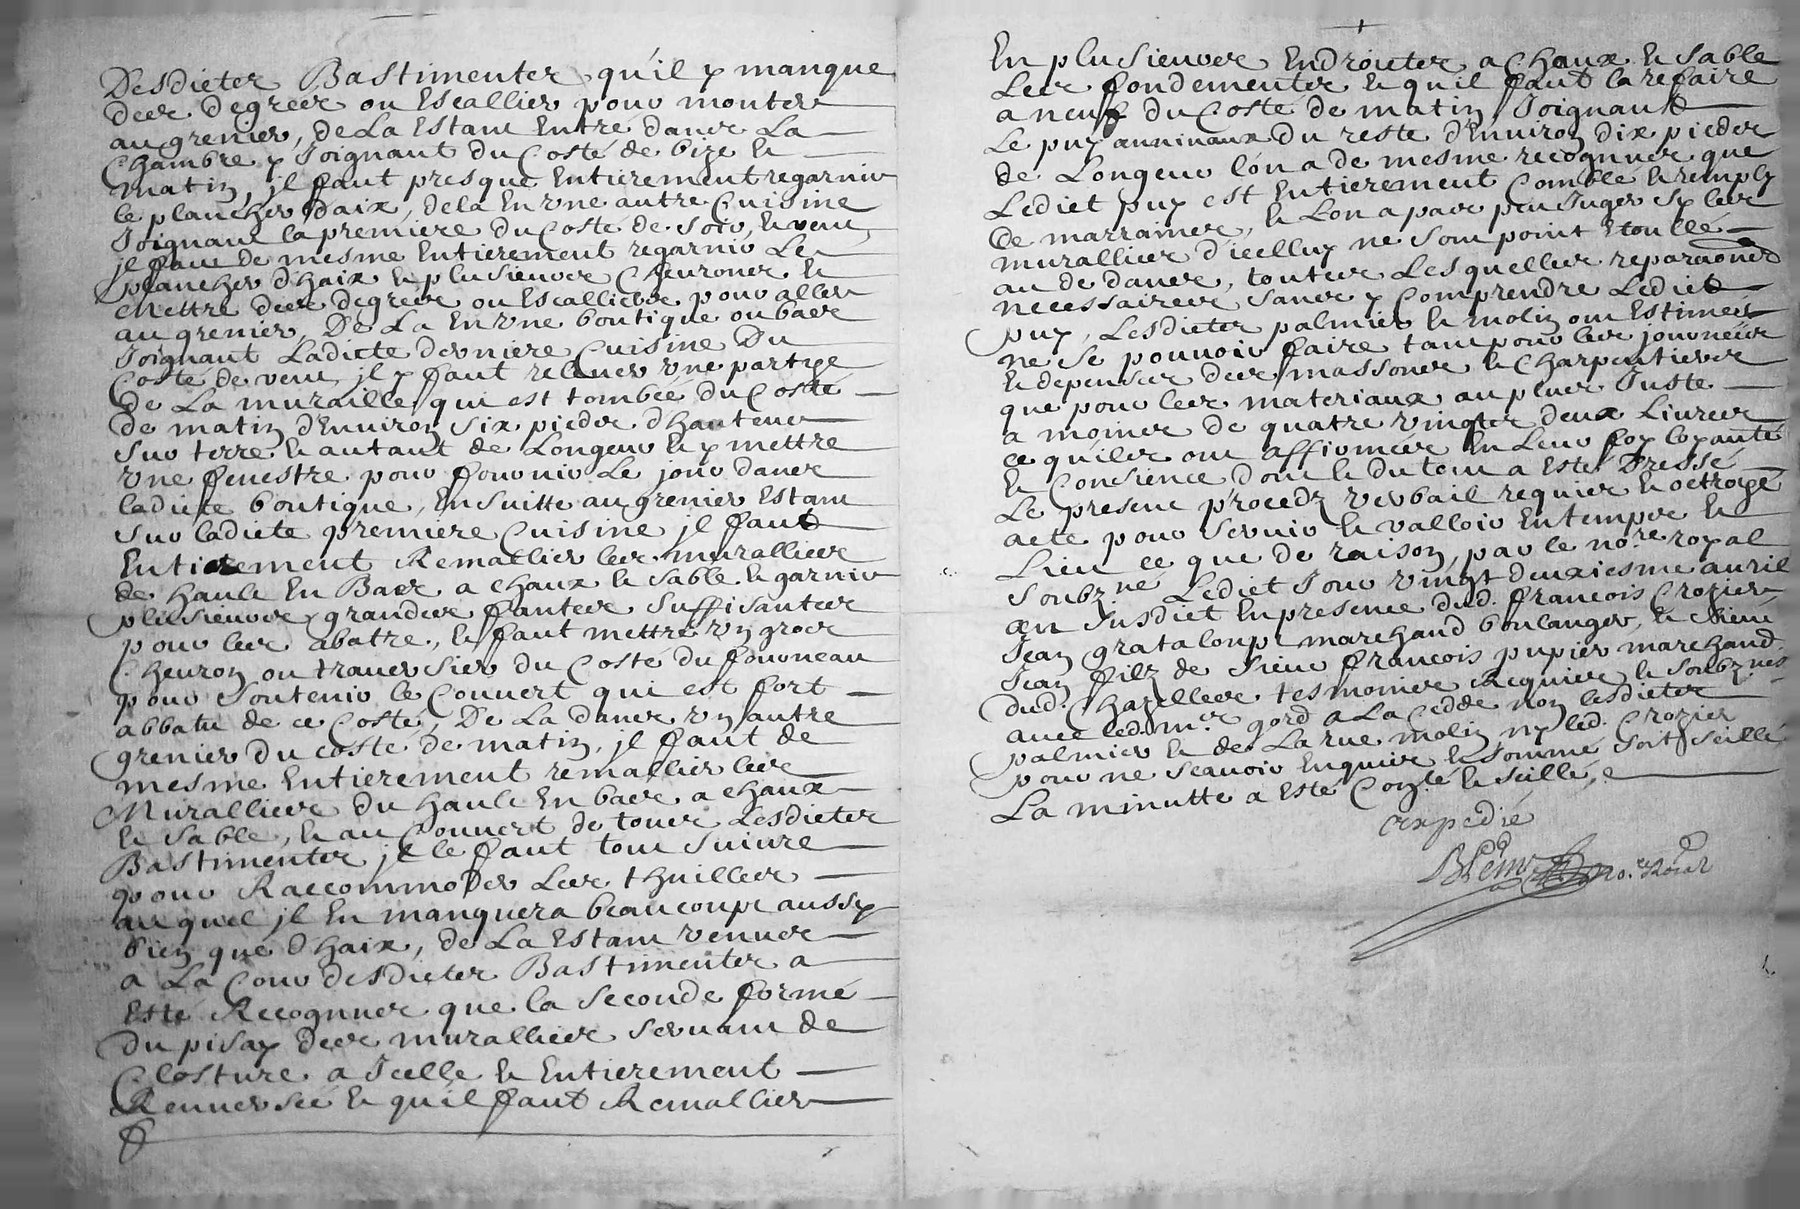 Desdictes Bastimentes qu'il y manque
des degrees ou Escallier pour monter
au grenier, de La Estant Entré dans La
Chambre y Joignant du Costé de bize et
matin, jl faut presque Entierement regarnir
le plancher d'aix, de la En vne autre Cuisine
Joignant la premiere du Costé de soir, et vent,
jl faut de mesme Entierement regarnir Le
plancher d'haix et plusieurs Cheurones et
Mettre des degrees ou Escalliers pour aller
au grenier, De La En vne boutique ou bas
Joignant Ladicte derniere Cuisine Du
Costé de vent, jl y faut releuer vne partye
de La muraille qui est tombée du Costé
de matin d'Enuiron six pieds d'hauteur
sur terre et autant de Longeur et y mettre
vne fenestre pour fournir Le jour dans
ladicte boutique, En suitte au grenier Estant
sur ladicte premiere Cuisine jl faut
Entierement Remallier les murallies
de hault En Bas a chaux et sable et garnir
plusieurs grandes fantes suffisantes
pour les abatre, et faut mettre vn gros
Cheuron ou trauersier du Costé du fourneau
pour soutenir le Couuert qui est fort
abbatu de ce Costé, De La dans vn autre
grenier du costé de matin, jl faut de
mesme Entierement remallier les
Murallies du hault En bas a chaux
et sable, et au Couuert de tous Lesdictes
Bastimentes jl le faut tout suiure
pour Raccommoder Les thuilles
au quel jl En manquera beaucoupt aussy
bien que d'haix, de La Estant venues
a La Cour desdictes Bastimentes a
Esté Recognues que la seconde forme
du pisay des murallies seruant de
Closture a Jcelle et Entierement
Renuersée et qu'il faut Remallier
En plusieurs Endroictes a Chaux et sable
Les fondementes et qu'il faut la refaire
a neuf du Costé de matin Joignant
Le puy du reste d'Enuiron dix pieds
de Longeur lon a de mesme recognues que
Ledict puy est Entierement Comblé et remply
de marraines, et Lon a pas peu Juger sy les
murallies d'icelluy ne sont point
au de dans, toutes Lesquelles reparaons
necessaires sans y Comprendre Ledict
puy, Lesdictes palmier et molin ont Estimées
ne se pouuoir faire tant pour les journées
et depenses des massones et Charpentiers
que pour les materiaux au plus Juste
a moines de quatre vingtes deux Liures
ce qu'iles ont affirmées En Leur foy loyauté
et Consience dont et du tout a Esté Dressé
Le present procedz verbail requier et octroyé
acte pour seruir et valloir En temps et
Lieu ce que de raison, par le no.re royal
soubzné Ledict Jour vingt deuxiesme auril
an susdict En presence dud. francois Crozier,
Jean grataloup marchand boulanger, et
Jean filz de sieur francois pupier marchand
dud. Chazelles tesmoines Requier et soubznes
auec led. mes. gord a La Cedde non lesdictes
palmier et de La rue molin ny led. Crozier
pour ne scauoir Enquier et sommé soit seillé
La minutte a Esté Con.lé et seillé,
Expedié
no.re Roial